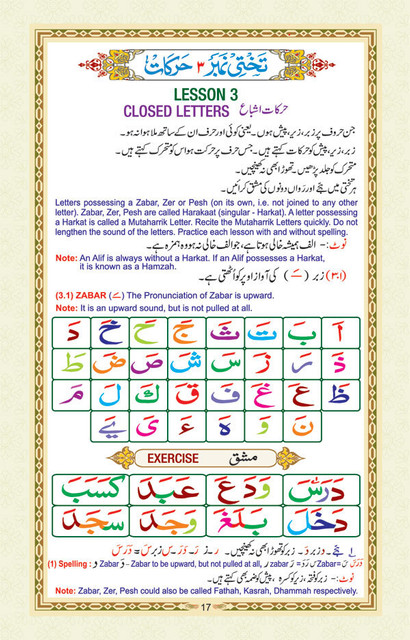 تختی نمبر ۳ حرکات
LESSON 3
CLOSED LETTERS حرکات اشباع
جن حروف پر زبر، زیر، پیش ہوں۔ یعنی کوئی اور حرف ان کے ساتھ ملا ہوا نہ ہو۔
زبر، زیر، پیش کو حرکات کہتے ہیں۔ جس حرف پر حرکت ہو اس کو متحرک کہتے ہیں۔
متحرک کو جلد پڑھیں۔ تھوڑا بھی نہ کھینچیں۔
ہر تختی میں ہجے اور رواں دونوں کی مشق کرائیں۔
Letters possessing a Zabar, Zer or Pesh (on its own, i.e. not joined to any other
letter). Zabar, Zer, Pesh are called Harakaat (singular - Harkat). A letter possessing
a Harkat is called a Mutaharrik Letter. Recite the Mutaharrik Letters quickly. Do not
lengthen the sound of the letters. Practice each lesson with and without spelling.
نوٹ:- الف ہمیشہ خالی ہوتا ہے، جو الف خالی نہ ہو وہ ہمزہ ہے۔
Note: An Alif is always without a Harkat. If an Alif possesses a Harkat,
it is known as a Hamzah.
(۳.۱) زبر (ـَ) کی آواز اوپر کو اُٹھتی ہے۔
(3.1) ZABAR (ـَ) The Pronunciation of Zabar is upward.
Note: It is an upward sound, but is not pulled at all.
اَ بَ تَ ثَ جَ حَ خَ دَ
ذَ رَ زَ سَ شَ صَ ضَ طَ
ظَ عَ غَ فَ قَ كَ لَ مَ
نَ وَ هَ ءَ یَ یَے
EXERCISE مشق
دَرَسَ وَدَعَ عَبَدَ كَسَبَ
دَخَلَ بَلَغَ وَجَدَ سَجَدَ
ہجے۔ و زبر وَ۔ زبر کو تھوڑا بھی نہ کھینچیں۔ ر زبر رَ۔ وَرَ۔ س زبر سَ = وَرَسَ
(1) Spelling : و Zabar وَ – Zabar to be upward, but not pulled at all, ر zabar رَ = وَرَ س Zabar سَ = وَرَسَ
نوٹ:- زبر کو فتحہ، زیر کو کسرہ، پیش کو ضمہ بھی کہتے ہیں۔
Note: Zabar, Zer, Pesh could also be called Fathah, Kasrah, Dhammah respectively.
17